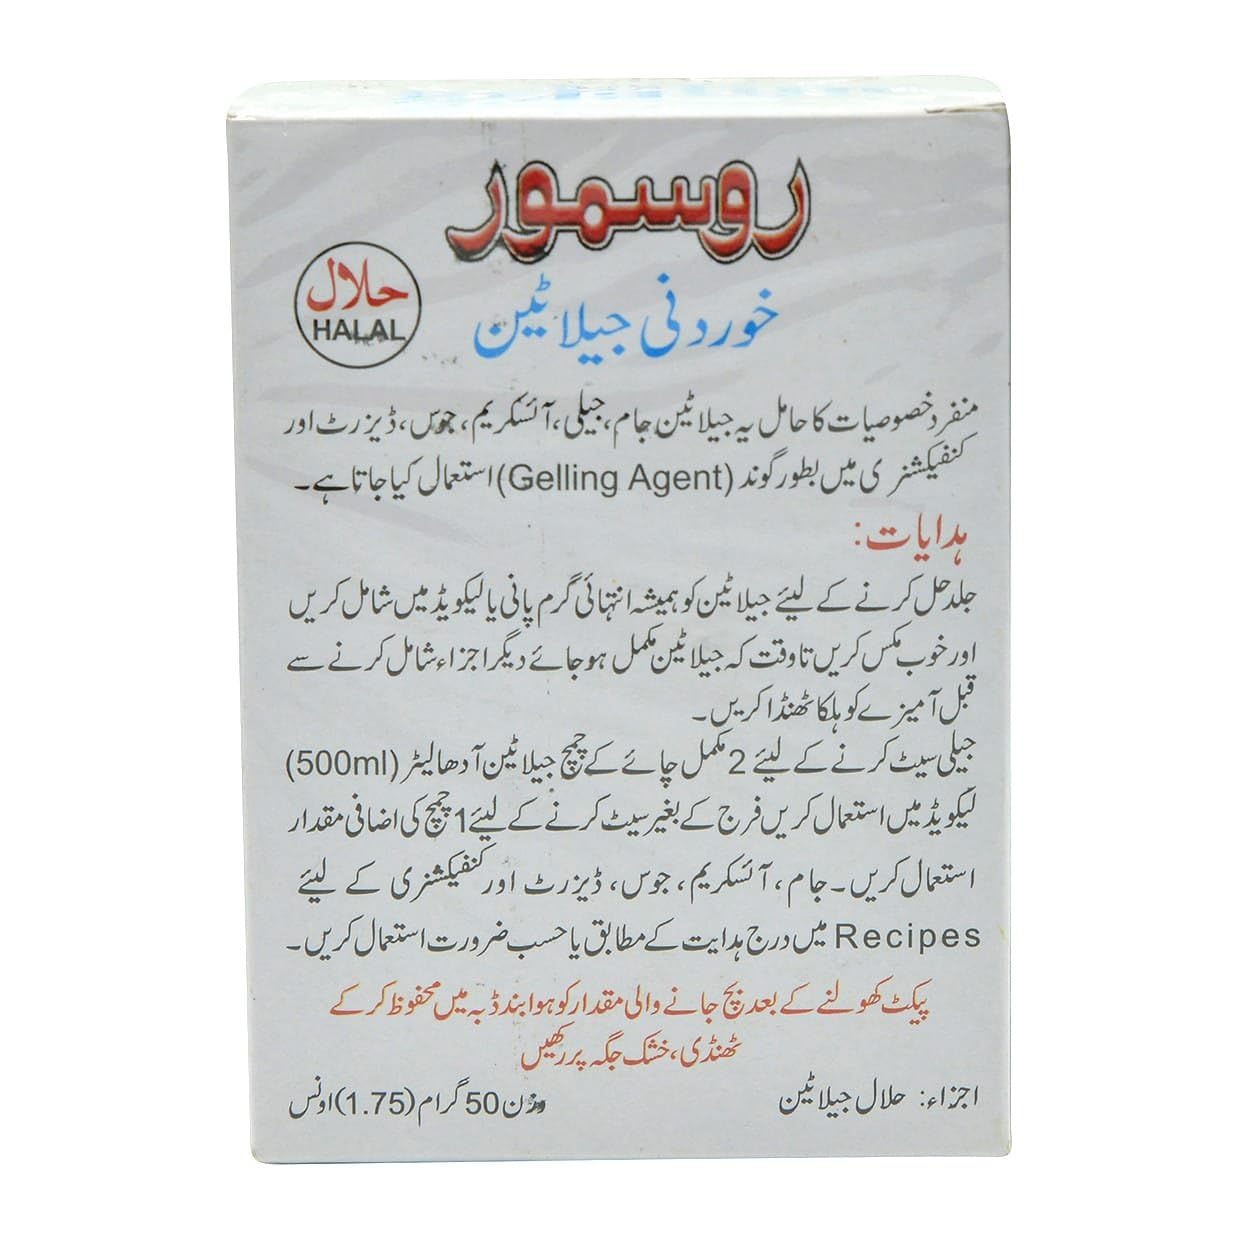 روسمور
حلال
HALAL
خوردنی جیلاٹین
منفرد خصوصیات کا حامل یہ جیلاٹین جام، جیلی، آئسکریم، جوس، ڈیزرٹ اور
کنفیکشنری میں بطور گوند (Gelling Agent) استعمال کیا جاتا ہے۔
ہدایات:
جلد حل کرنے کے لیئے جیلاٹین کو ہمیشہ انتہائی گرم پانی یا لیکویڈ میں شامل کریں
اور خوب مکس کریں تاوقت کہ جیلاٹین مکمل ہو جائے دیگر اجزاء شامل کرنے سے
قبل آمیزے کو ہلکا ٹھنڈا کریں۔
جیلی سیٹ کرنے کے لیئے 2 مکمل چائے کے چمچ جیلاٹین آدھا لیٹر (500ml)
لیکویڈ میں استعمال کریں فرج کے بغیر سیٹ کرنے کے لیئے 1 چمچ کی اضافی مقدار
استعمال کریں۔ جام، آئسکریم، جوس، ڈیزرٹ اور کنفیکشنری کے لیئے
Recipes میں درج ہدایت کے مطابق یا حسب ضرورت استعمال کریں۔
پیکٹ کھولنے کے بعد بچ جانے والی مقدار کو ہوا بند ڈبہ میں محفوظ کر کے
ٹھنڈی، خشک جگہ پر رکھیں
اجزاء: حلال جیلاٹین
وزن 50 گرام (1.75) اونس